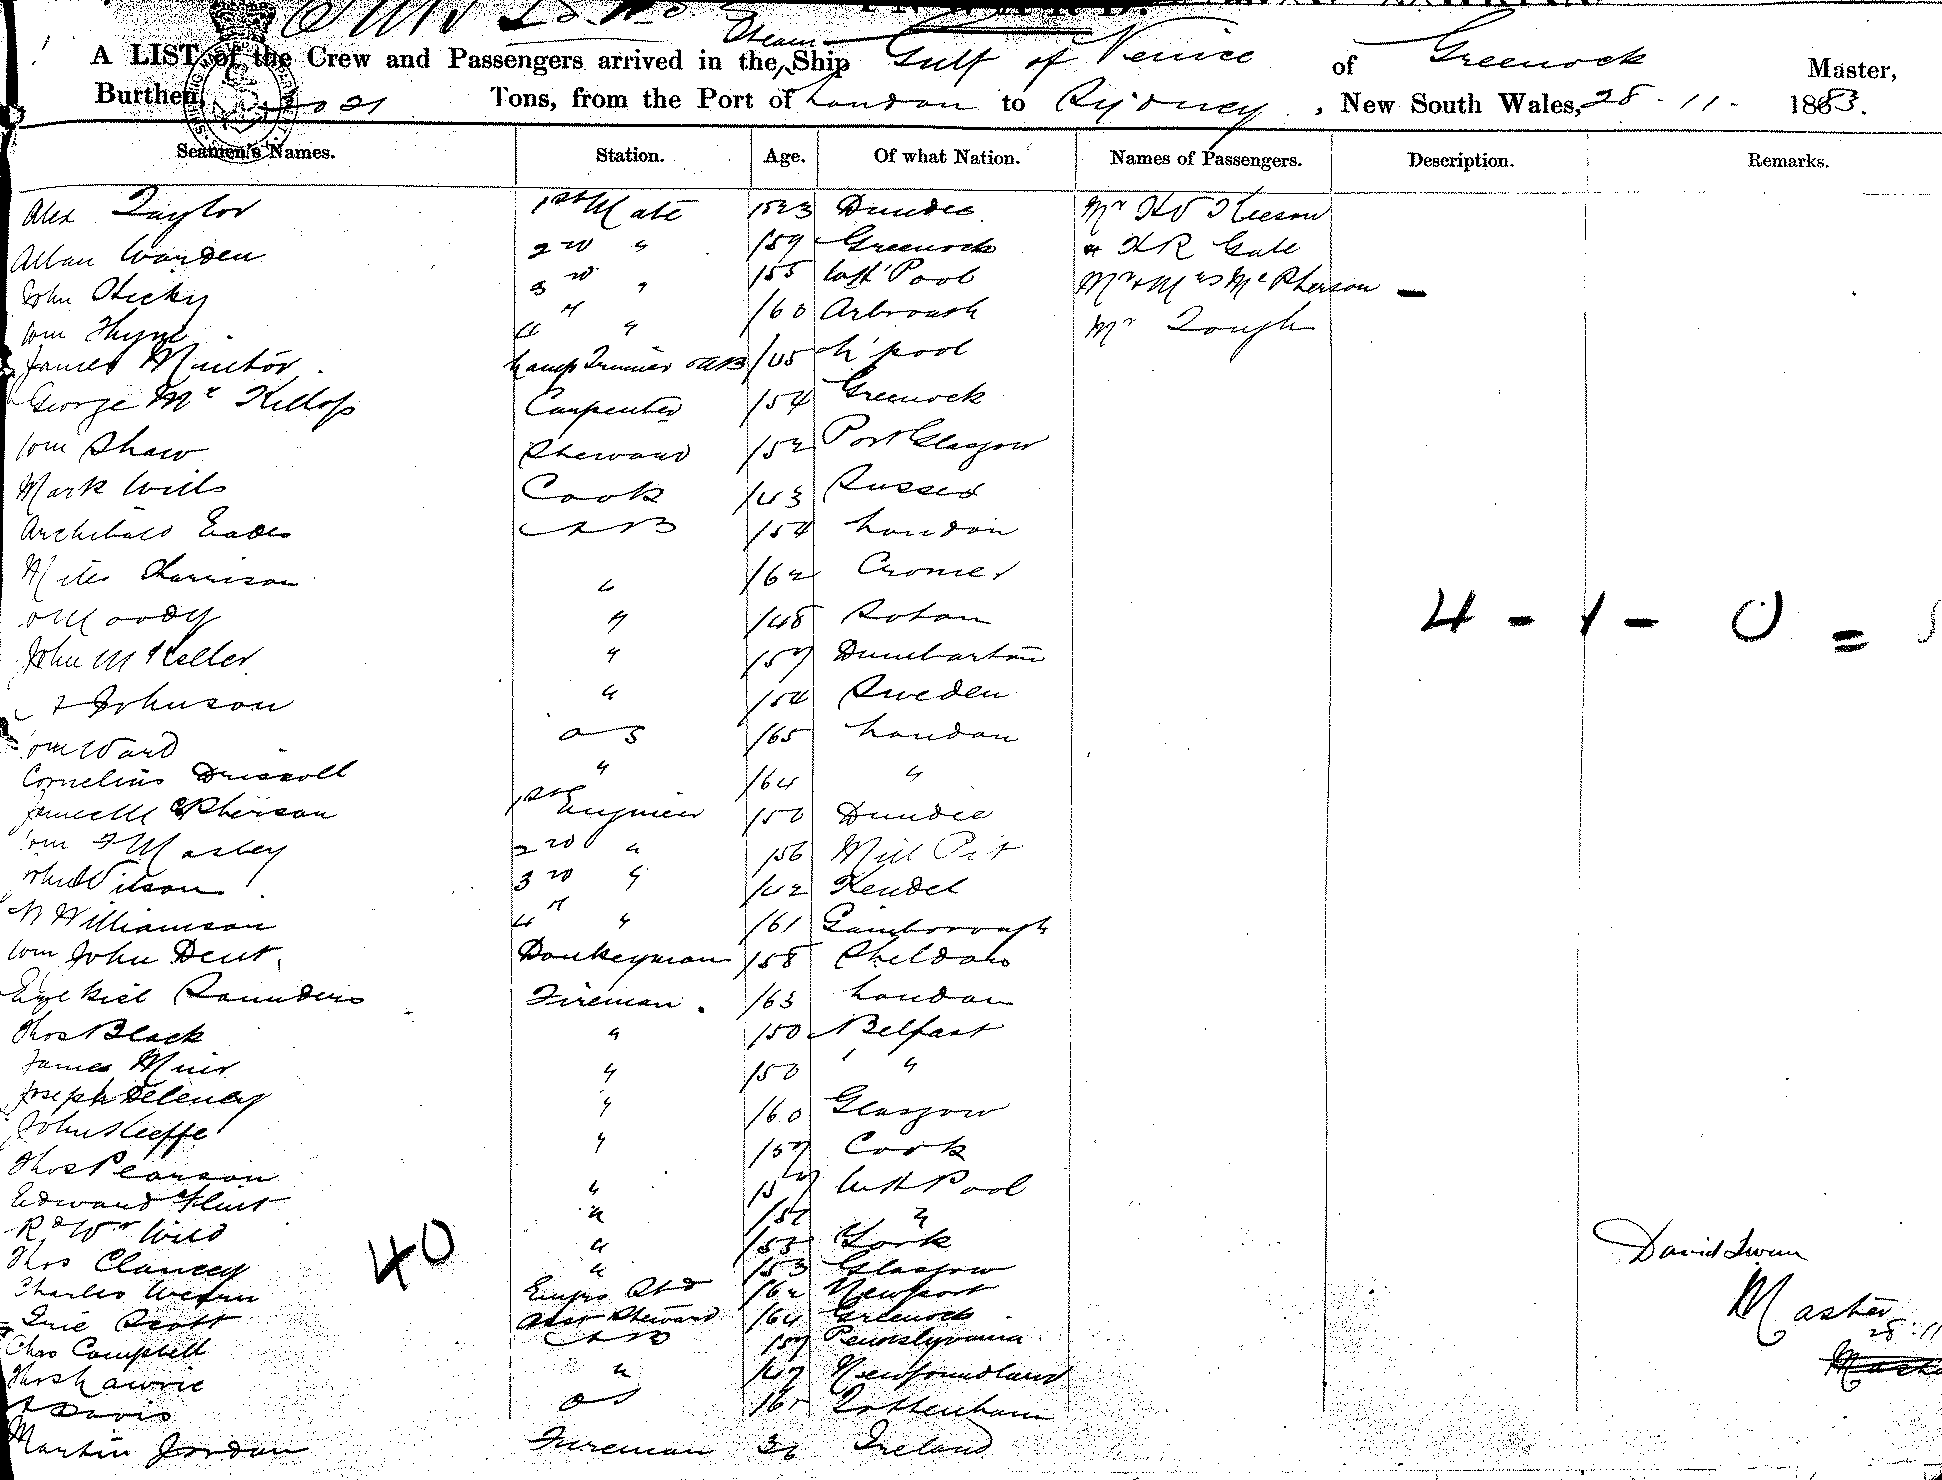 Steam
A LIST of the Crew and Passengers arrived in the Ship Gulf of Venice of Greenock Master,
Burthen, Tons, from the Port of London to Sydney, New South Wales, 28.11.1883.
Seamen's Names. Station. Age. Of what Nation. Names of Passengers. Description. Remarks.
Alex Taylor 1st Mate Dundee Mr
Allan Warden 2nd " /59 Greenock " H R Gale
John Hicky 3rd " /55 Htl Pool Mr & Mrs McPherson -
Wm Thyne 4th " /60 Arbroath Mr Tough
James Lamp Trimmer & AB /45 L'pool
George McKillop Carpenter /54 Greenock
Wm Shaw Steward /52 Port Glasgow
Mark Wills Cook /43 Sussex
Archibald Eades AB /54 London
Miles Harrison " /62 Cromer
Moody " /48
John McKeller " /57 Dumbarton
Johnson " /54 Sweden
Wm Ward OS /65 London
Cornelius Driscoll " /64 "
James McPherson 1st Engineer /50 Dundee
Wm Masley 2nd " /56 Mill Pit
John Wilson 3rd " /42 Kendel
Williamson 4th " /61 Gainborough
Wm John Dent Donkeyman /58
Ezekiel Saunders Fireman. /63 London
Thos Black " /50 Belfast
James Muir " /50 "
Joseph Deleney " /60 Glasgow
John Keeffe " /57 Cork
Thos Pearson " /57 Htl Pool
Edward Flint " "
Rd Wm Wild " /53 York
Thos Clancey " /53 Glasgow
Charles Engrs Std /62 Newport
Scott Asst Steward /64 Greenock
Chas Campbell AB /57 Pennslyvania
Thos Lawrie " /47 Newfoundland
Davis OS /65 Tottenham
Martin Jordan Fireman 36 Ireland
4 - 1 - 0 =
40
David
Master
28.11